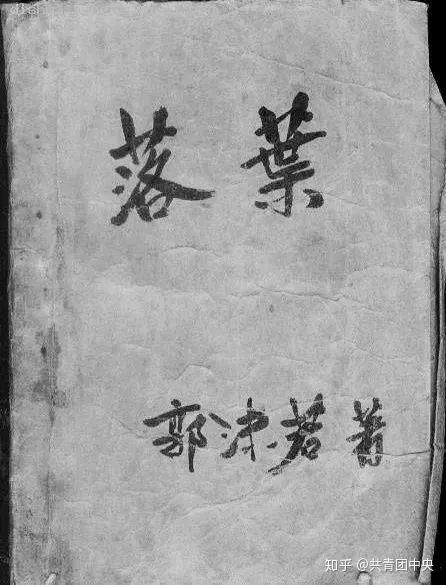 落葉
郭沫若著
知乎 @共青团中央